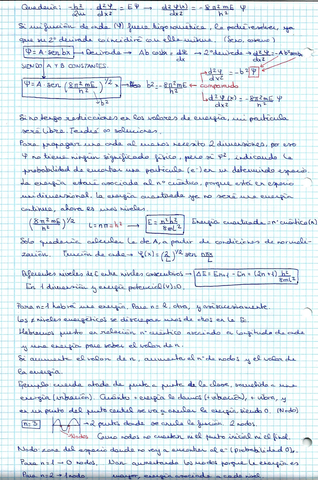 Quedaría: -ħ²/2m d²Ψ/dx² = EΨ → d²Ψ(x)/dx² = -8π²mE/h² Ψ
Si mi función de onda (Ψ) fuera trigonométrica, la podría resolver, ya
que su 2ª derivada coincidiría con ella misma. (Seno, coseno)
Ψ = A sen bx → Derivada → Ab cosbx → 2ª derivada → d²Ψ/dx² = -Ab² senbx
SIENDO A Y B CONSTANTES. d²Ψ/dx² = -b²Ψ
Ψ = A sen (8π²mE/h²)^1/2 x b² = 8π²mE/h² ← comparando
d²Ψ(x)/dx² = -8π²mE/h² Ψ
Si no tengo restricciones en los valores de energía, mi partícula
será libre. Tendré ∞ soluciones.
Para propagar una onda al menos necesito 2 dimensiones, por eso
Ψ no tiene ningún significado físico, pero sí Ψ², indicando la
probabilidad de encontrar una partícula (e⁻) en un determinado espacio.
La energía estará asociada al nº cuántico, porque está en espacio
unidimensional. La energía cuantizada ya no será una energía
continua, ahora es una niveles
(8π²mE/h²)^1/2 L = nπ E = n²h²/8mL² Energía cuantizada = nº cuántico (n)
Solo quedaría calcular la de A, a partir de condiciones de normali-
zación. Función de onda → Ψ(x) = (2/L)^1/2 sen nπx/L
Diferentes niveles de E entre niveles consecutivos → ΔE = En+1 - En = (2n+1) h²/8mL²
En 1 dimensión y energía potencial (V)=0.
Para n=1 habrá una energía. Para n=2, otra, y así sucesivamente.
Los niveles energéticos se
Habremos puesto en relación nº cuántico asociado a longitud de onda
y una energía para saber el valor de n.
Si aumenta el valor de n, aumenta el nº de nodos y el valor de
la energía.
Ejemplo cuerda atada de punta a punta de la clase, sometida a una
energía (vibración). Cuanta + energía le damos (+vibración), + vibra, y
en un punto del punto central se va a anular la energía siendo 0. (Nodo)
n=3 → 2 puntos donde se anula la función. 2 nodos.
nodos Como nodos no cuentan ni el punto inicial ni el final.
Nodo: zona del espacio donde no voy a encontrar al e⁻ (probabilidad 0).
Para n=1 → 0 nodos. Van aumentando los nodos porque la energía es
Para n=2 → 1 nodo. mayor, energía asociada a cada nivel.